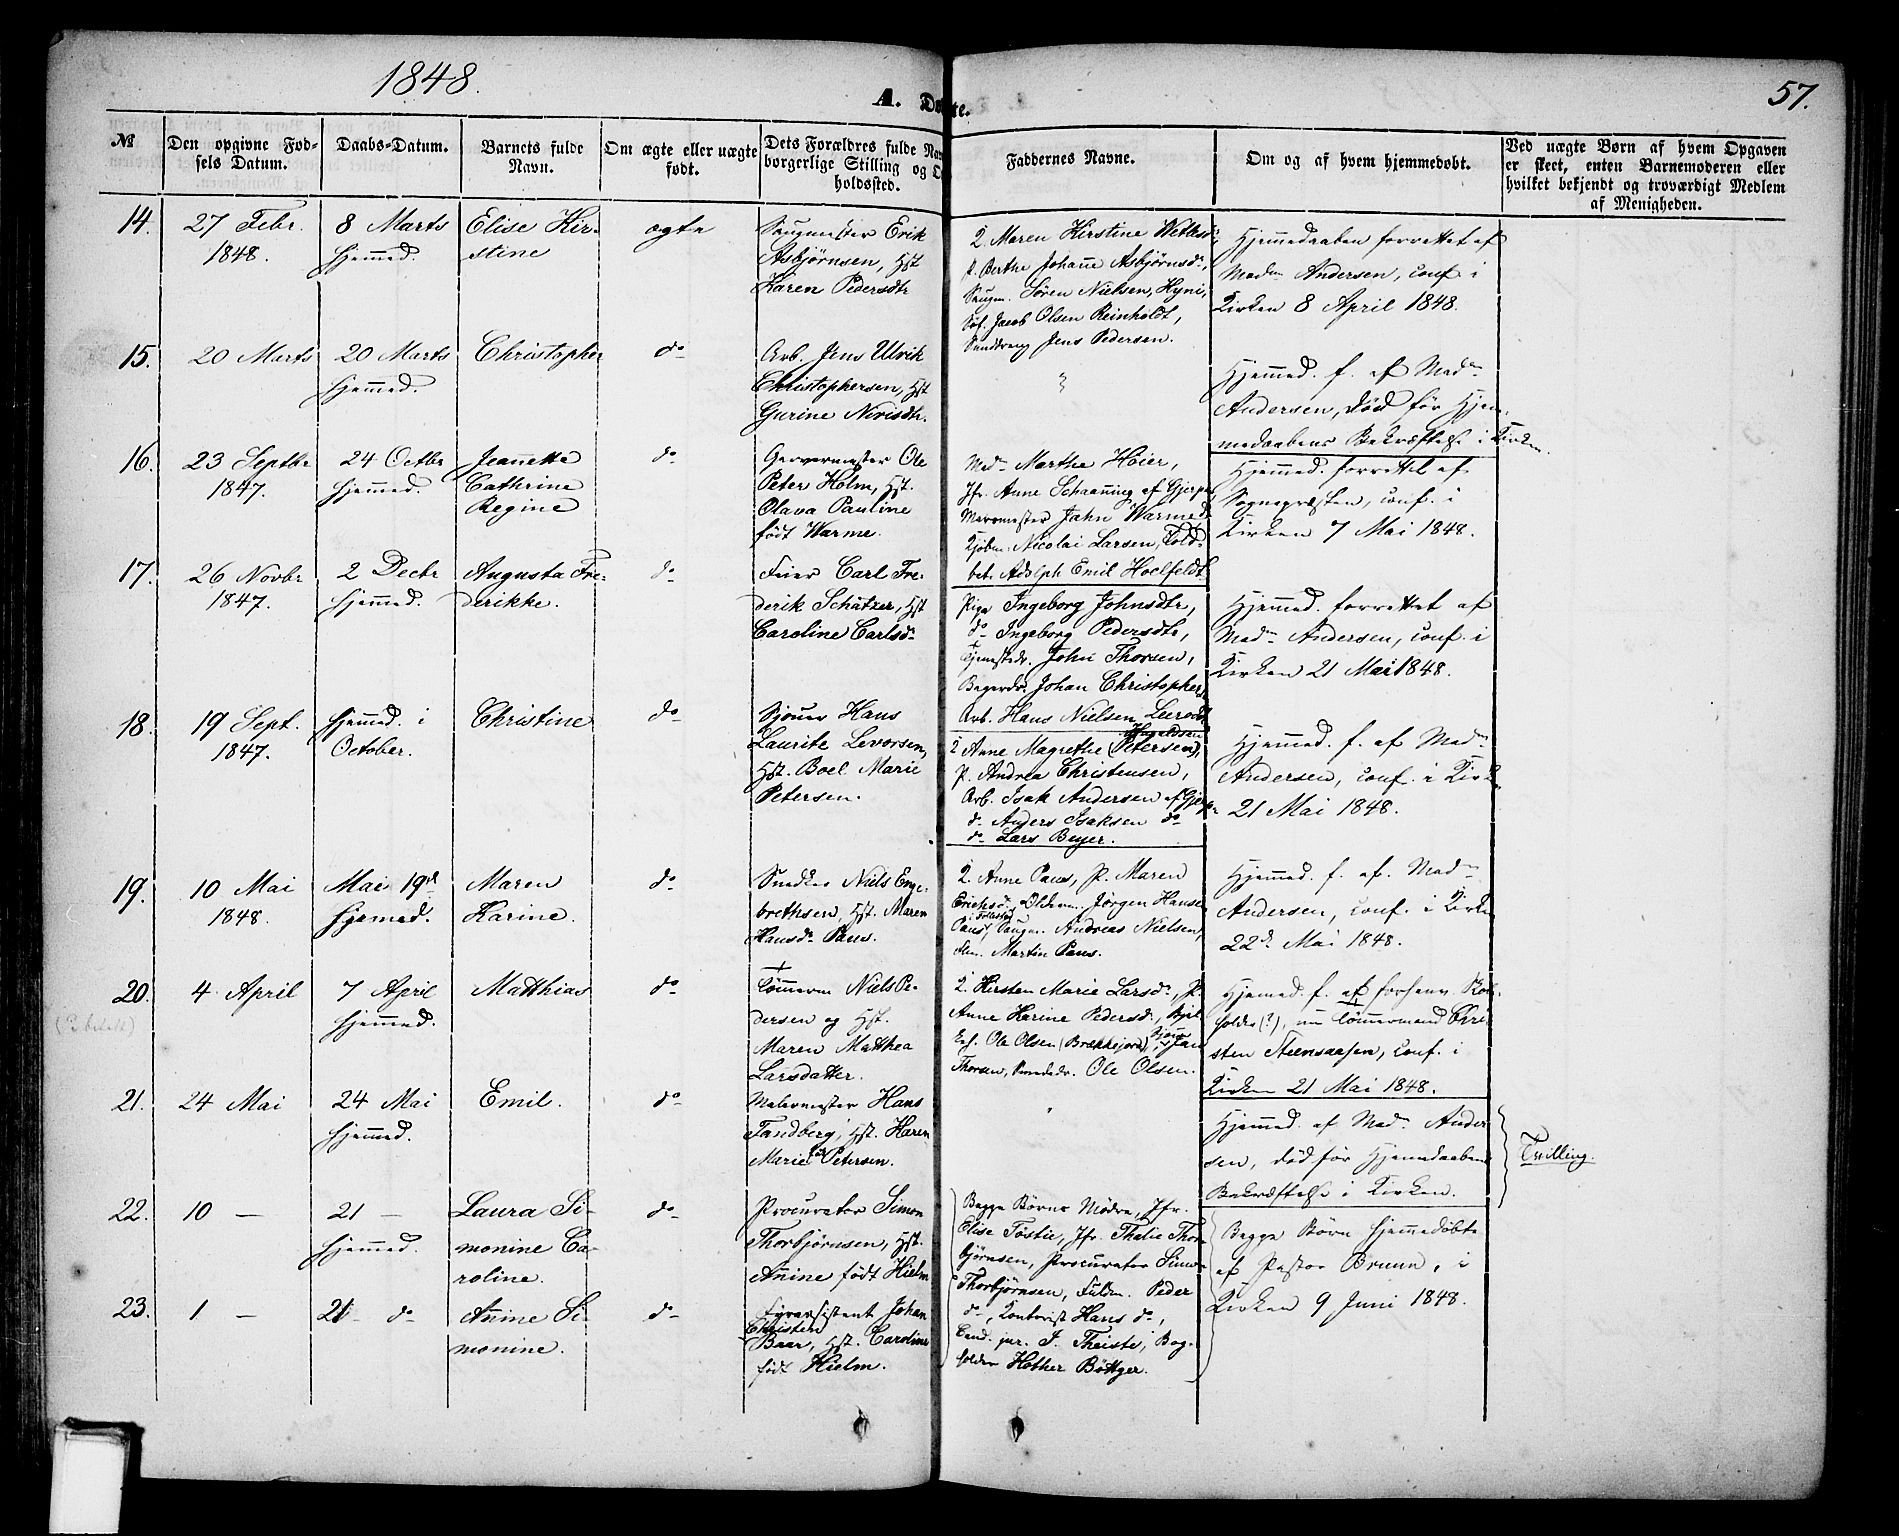 1848.
A. Døbte.
57.
№
Den opgivne Fød-
sels Datum.
Daabs-Datum.
Barnets fulde
Navn.
Om ægte eller uægte
født.
Dets Forældres fulde Nav
borgerlige Stilling og O
holdssted.
Faddernes Navne.
Om og af hvem hjemmedøbt.
Ved uægte Børn af hvem Opgaven
er skeet, enten Barnemoderen eller
hvilket bekjendt og troværdigt Medlem
af Menigheden.
14.
27 Febr.
1848.
8 Marts
hjemmed.
Elise Kir-
stine
ægte
Saugmester Erik
Asbjørnsen, Hst
Karen Pedersdtr
2. Maren Kirstine Wetlesd.,
p. Berthe Johanne Asbjørnsd.,
Saugm. Søren Nielsen, Hyni,
Søf. Jacob Olsen Reinholdt,
Jens Pedersen.
Hjemmedaaben forrettet af
Madm Andersen, conf. i
Kirken 8 April 1848.
15.
20 Marts
20 Marts
hjemmed.
Christopher
do
Arb. Jens Ulrik
Christophersen, Hst
Gurine Nerisdtr.
"
Hjemmed. f. af Madm
Andersen, død før Hjem-
medaabens Bekræftelse i Kirken.
16.
23 Septbr
1847.
24 Octbr
hjemmed.
Jeannette
Cathrine
Regine
do
Garvermester Ole
Peter Holm, Hst.
Olava Pauline
født Warme.
Mad. Marthe Høier,
Jfr. Anne Schaanning af Gjerpe
Jahn Warme
Kjøbm. Nicolai Larsen, Told-
bet. Adolph Emil Hoelfeldt
Hjemmed. forrettet af
Sognepræsten, conf. i
Kirken 7 Mai 1848.
17.
26 Novbr
1847.
2 Decbr
hjemmed.
Augusta Fre-
derikke.
do
Feier Carl Fre-
derik Schätzer, Hst
Caroline Carlsdr
Pige Ingeborg Johnsdtr,
do Ingeborg Pedersdtr,
Tjenestedr. John Thorsen,
Bagerdr. Johan Christophers
Arb. Hans Nielsen Leerodt
Hjemmed. forrettet af
Madm Andersen, conf. i
Kirken 21 Mai 1848.
18.
19 Sept.
1847.
hjemmed. i
October.
Christine
do
Sjouer Hans
Laurits Levorsen,
Hst. Boel Marie
Petersen.
2 Anne Magrethe (Petersen),
p. Andrea Christensen,
Arb. Isak Andersen af Gjerpe
do Anders Isaksen do
do Lars Beyer.
Hjemmed. f. af Madm
Andersen, conf. i Kirk
21 Mai 1848.
19.
10 Mai
1848.
Mai 19d
hjemmed.
Maren
Karine.
do
Snedker Niels Enge-
brethsen, Hst. Maren
Hansdr Paus.
2. Anne Paus, p. Maren
Erichsdr Jørgen Hansen
Paus, Saugm. Andreas Nielsen,
Martin Paus.
Hjemmed. f. af. Madm
Andersen, conf. i Kirk
22d Mai 1848.
20.
4 April
7 April
hjemmed.
Matthias
do
Tømmerm Niels Pe-
dersen og Hst.
Maren Matthea
Larsdatter.
2. Kirsten Marie Larsdr, p.
Anne Karine Pedersdr,
Ole Olsen (Brækkejord), Sjouer Jan
Thorsen, Smededr. Ole Olsen.
Hjemmed. f. af forhenv.
holder (?), nu Tømmermand Chri-
sten Steensaasen, conf. i
Kirken 21 Mai 1848.
21.
24 Mai
24 Mai
hjemmed.
Emil.
do
Malermester Hans
Tandberg, Hst. Karen
Marie f. Petersen.
"
Hjemmed. af Mad. Ander
sen, død før Hjemmedaabens
Bekræftelse i Kirken.
Tvilling.
22.
10 —
21 —
hjemmed.
Laura Si-
monine Ca-
roline.
do
Procurator Simon
Thorbjørnsen, Hst.
Annine født Hielm
Begge Børns Mødre, Jfr.
Elise Tostie, Jfr. Thalie Thor
bjørnsen, Procurator Simon
Thorbjørnsen, Fuldm. Peder
do, Contorist Hans do,
Cand. jur. J. Theiste, Bog-
holder Hother Bøttger.
Begge Børn hjemmedøbte
af Pastor Bruun, i
Kirken 9 Juni 1848.
23.
1 —
21 do
Annine Si-
monine.
do
Fyrassistent Johan
Christen
Baar, Hst. Caroline
født Hielm.